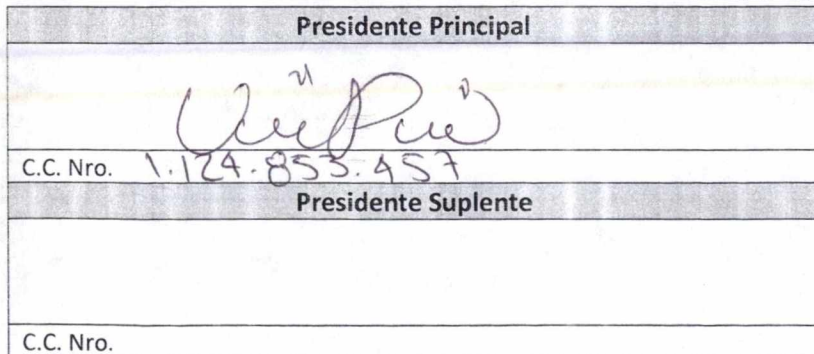 Presidente Principal
C.C. Nro. 1.124.853.457
Presidente Suplente
C.C. Nro.